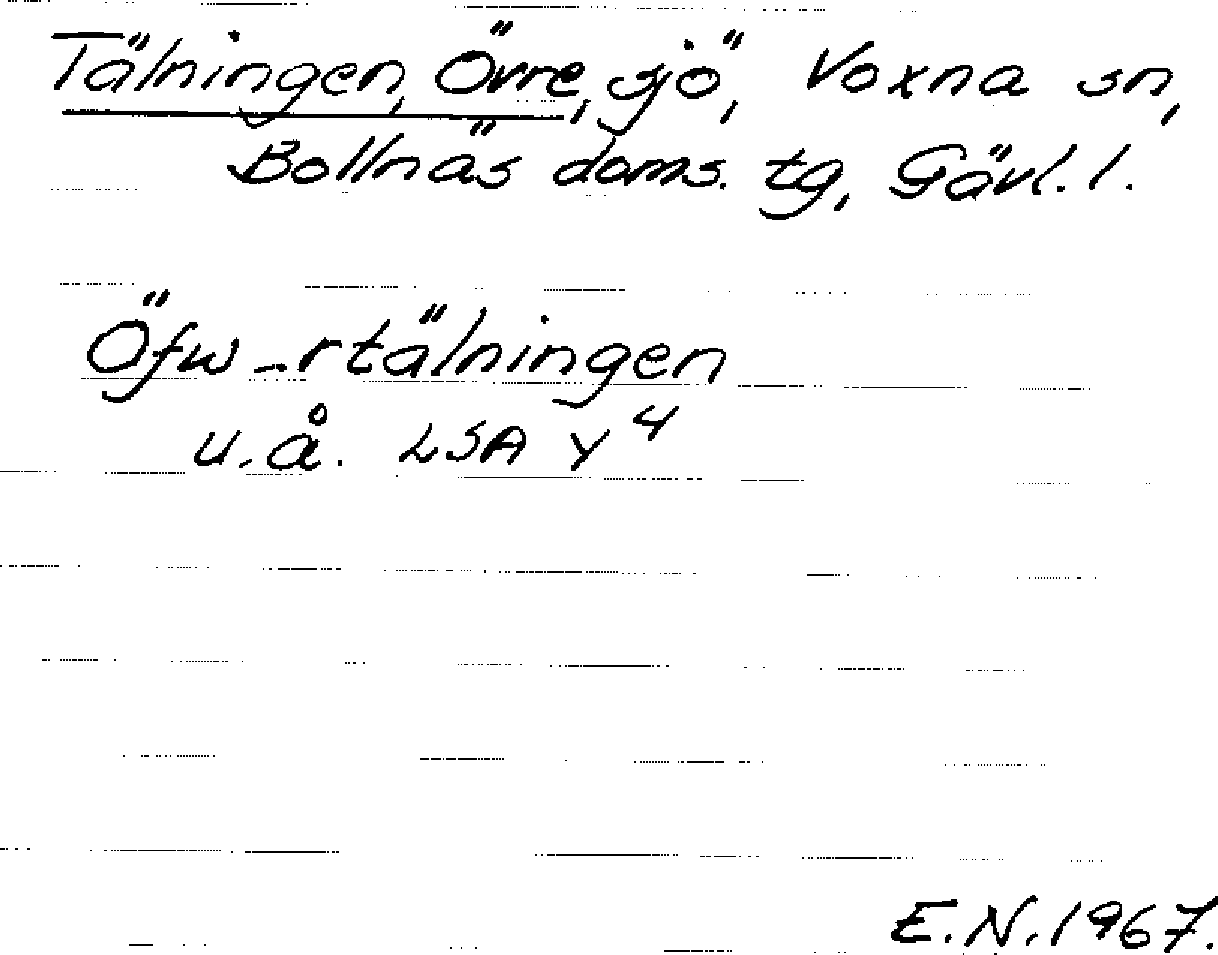 Tälningen, Övre, sjö, Voxna sn,
Bollnäs doms. tg, Gävl. l.
Öfw_rtälningen
u.å. LSA Y4
E.N. 1967.